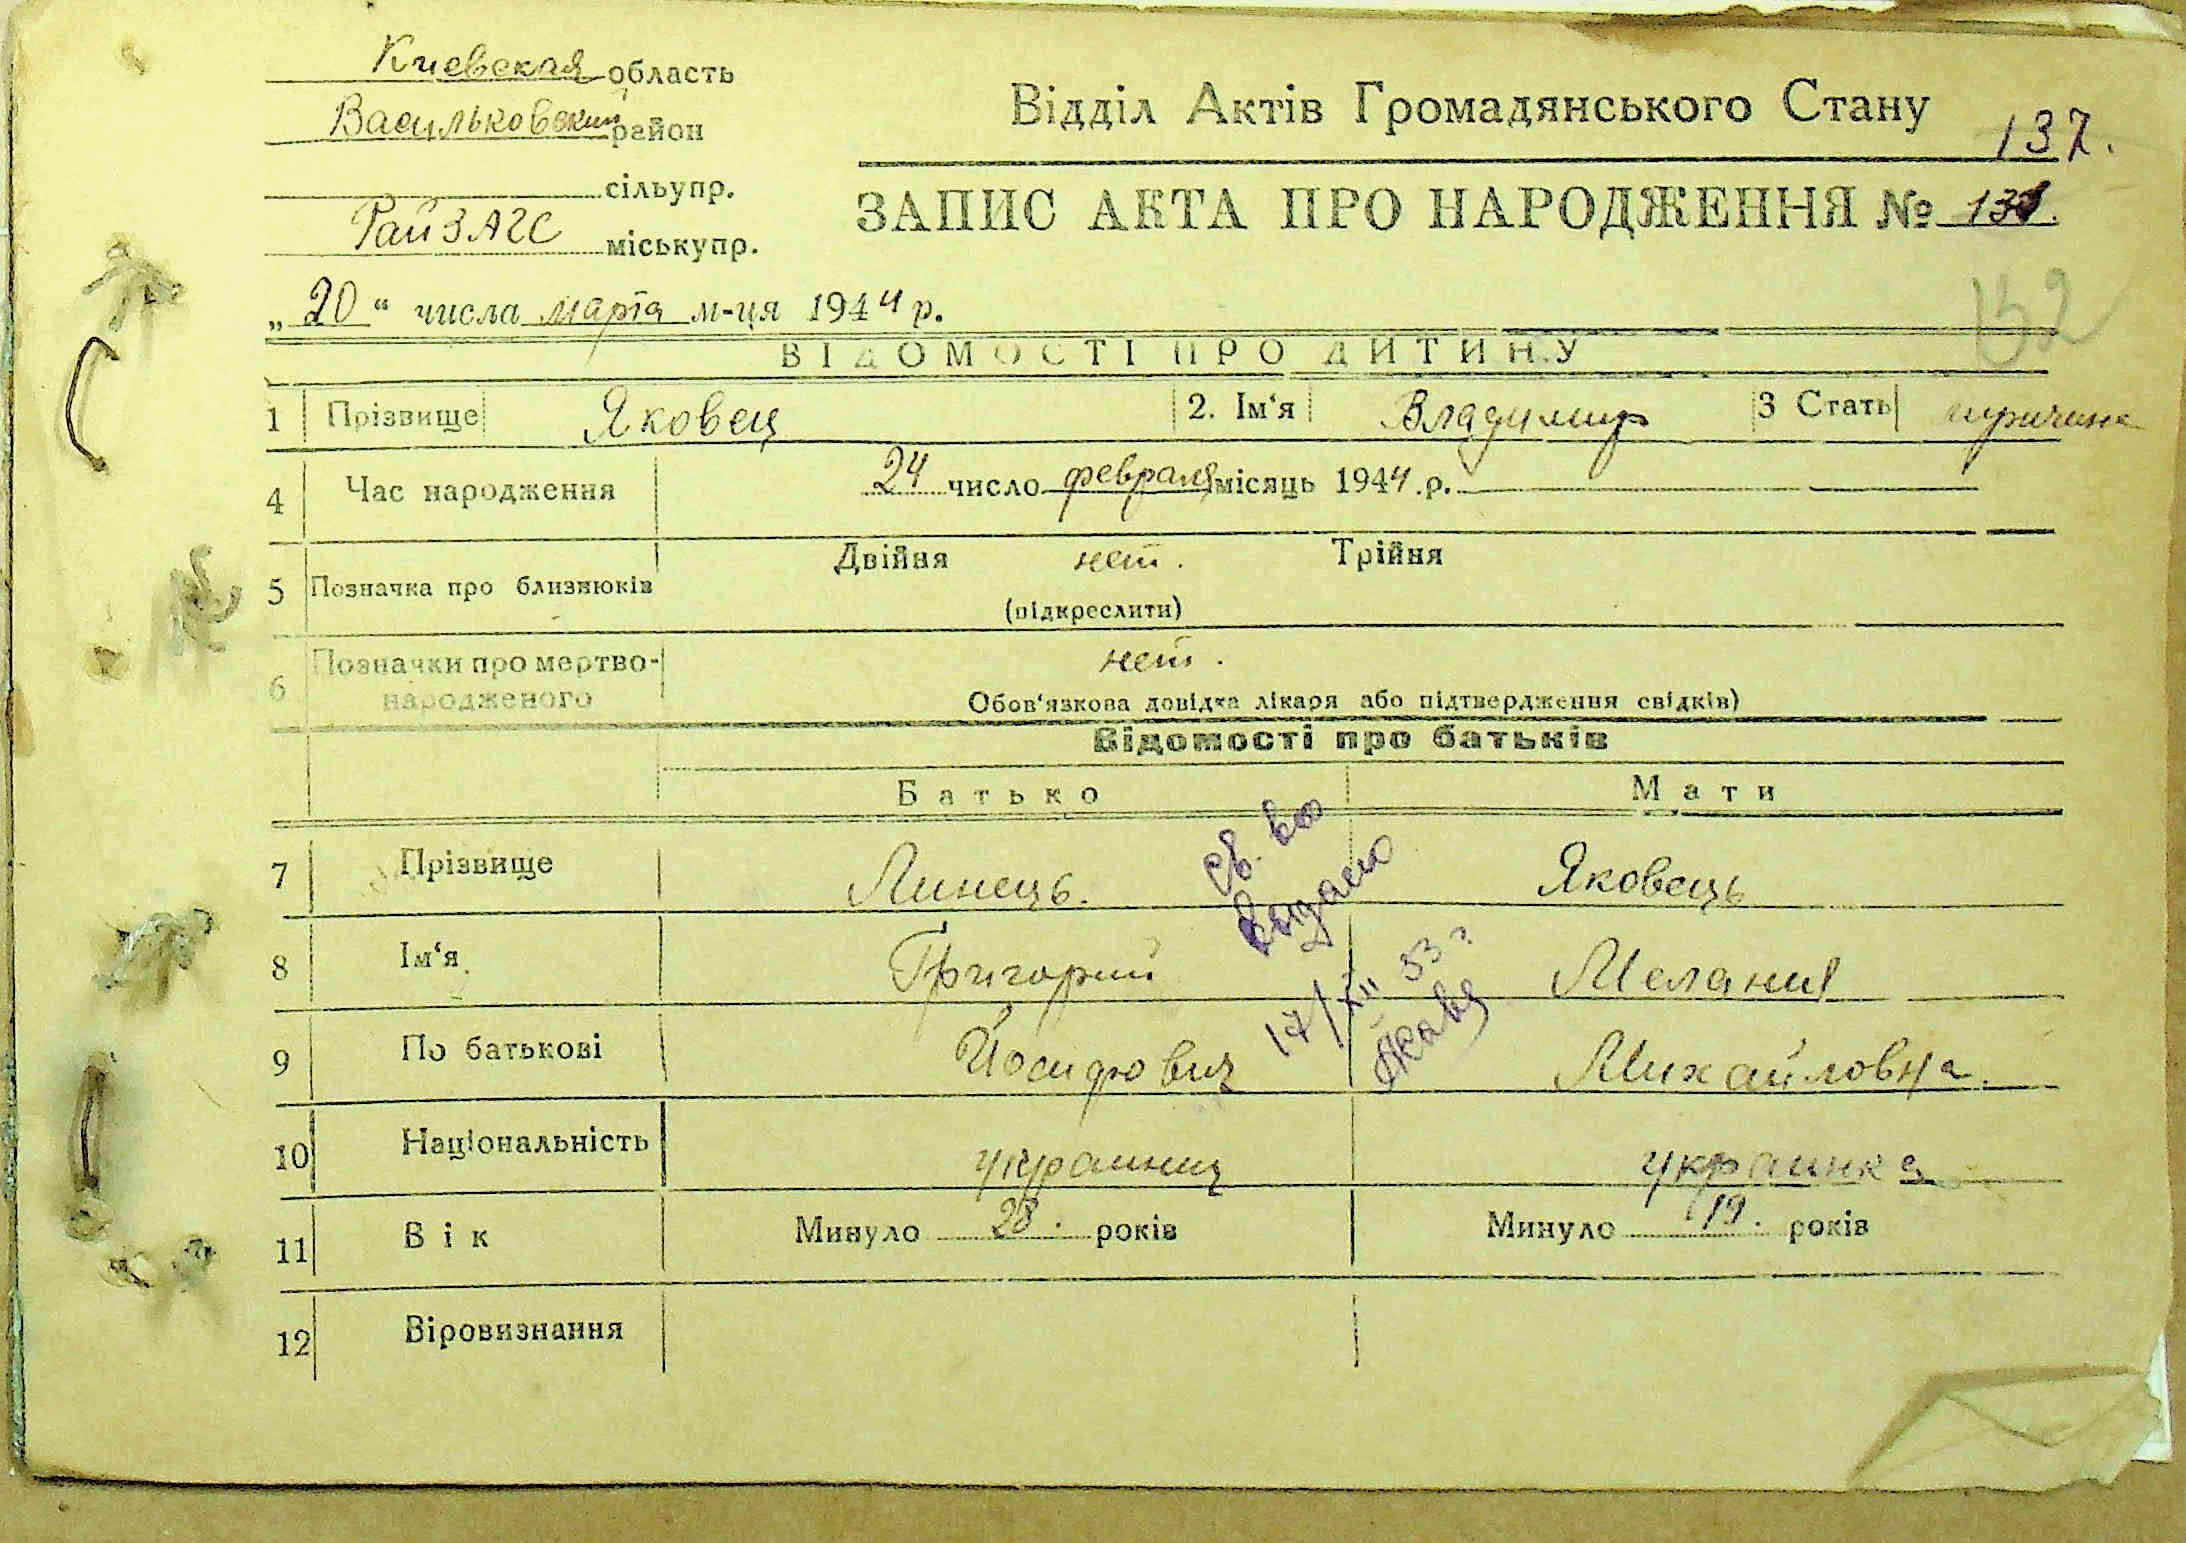 Киевская область
Васильковский район
сільупр.
РайЗАГС міськупр.
Відділ Актів Громадянського Стану
137.
ЗАПИС АКТА ПРО НАРОДЖЕННЯ №
„20“ числа марта м-ця 1944 р.
152
ВІДОМОСТІ ПРО ДИТИНУ
1 Прізвище Яковец 2. Ім‘я Владимир 3 Стать
4 Час народження 24 число февраля місяць 1944 .р.
5 Позначка про близнюків Двійня нет. Трійня
(підкреслити)
6 Позначки про мертво-народженого нет.
Обов‘язкова довідка лікаря або підтвердження свідків)
Відомості про батьків
Батько Мати
7 Прізвище Линець. Яковець
8 Ім‘я Григорий Мелания
9 По батькові Йосифович Михайловна.
10 Національність украинец украинка
11 Вік Минуло 28. років Минуло 19. років
12 Віровизнання
св. во
выдано
17/XII 53 г